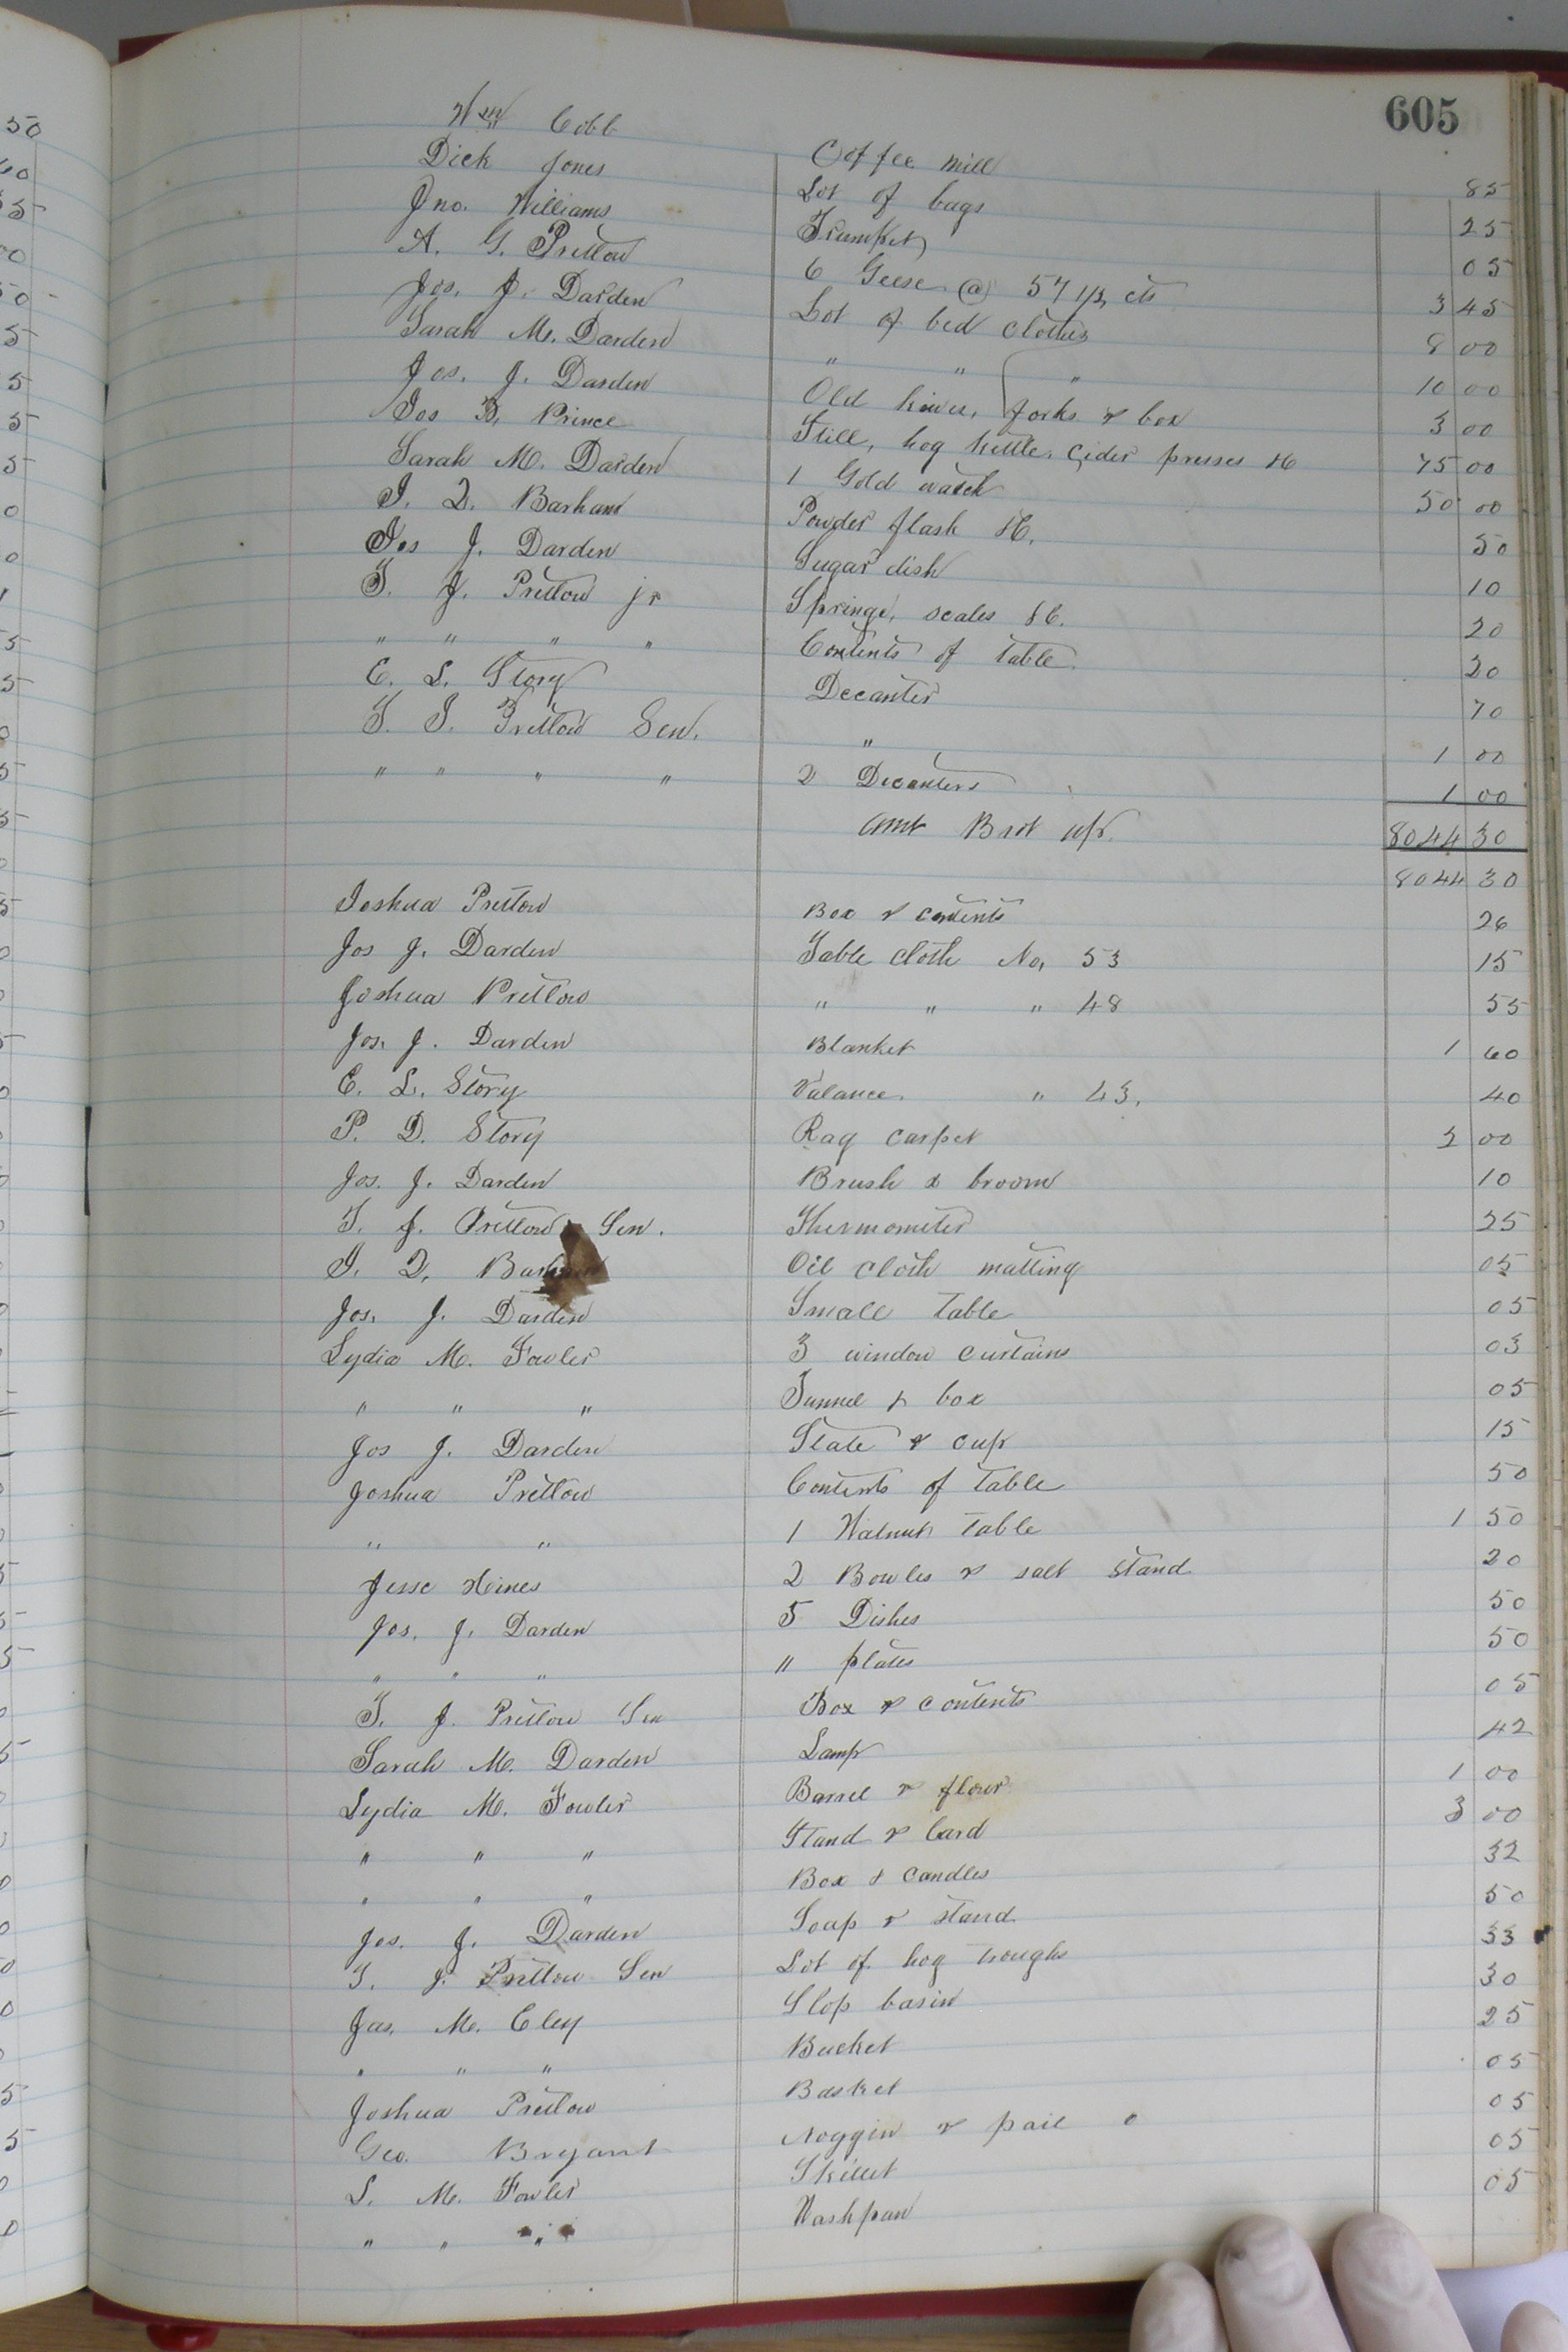 605
Wm Cobb Coffee mill 85
Dick Jones Lot of bags 25
Jno. Williams Trumpet 05
A. G. Pretlow 6 Geese @ 57 1/2 cts 3 45
Jos. J. Darden Lot of bed clothes 8 00
Sarah M. Darden " " " 10 00
Jos. J. Darden Old knives, forks & box 3 00
Jos B. Prince Still, hog kettle, Cider presses &c 75 00
Sarah M. Darden 1 Gold watch 50 00
J. D. Barham Powder flask &c. 50
Jos J. Darden Sugar dish 10
T. J. Pretlow jr Springe, scales &c. 20
" " " " Contents of table 20
E. L. Story Decanter 70
T. J. Pretlow Sen. " 1 00
" " " " 2 Decanters 1 00
8044 30
Amt Brot up. 8044 30
Joshua Pretlow Box & contents 26
Jos J. Darden Table cloth No. 53 15
Joshua Pretlow " " " 48 55
Jos. J. Darden Blanket 1 60
E. L. Story Valance " 43. 40
P. D. Story Rag carpet 2 00
Jos. J. Darden Brush & broom 10
T. J. Pretlow Sen. Thermometer 25
J. D. Barham Oil cloth matting 05
Jos. J. Darden Small table 05
Lydia M. Fowler 3 window curtains 03
" " " Funnel & box 05
Jos J. Darden Slate & cup 15
Joshua Pretlow Contents of table 50
" " 1 Walnut table 1 50
Jesse Hines 2 Bowles & salt stand 20
Jos. J. Darden 5 Dishes 50
" " " " plates 50
T. J. Pretlow Sen Box & contents 05
Sarah M. Darden Lamp 42
Lydia M. Fowler Barrel & flour 1 00
" " " Stand & Lard 3 00
" " " Box & candles 32
Jos. J. Darden Soap & stand 50
T. J. Pretlow Sen Lot of hog troughs 33
Jas. M. Eley Slop basin 30
" " " Bucket 25
Joshua Pretlow Basket 05
Geo. Bryant Noggin & pail 05
L. M. Fowler Skillet 05
" " " Washpan 05